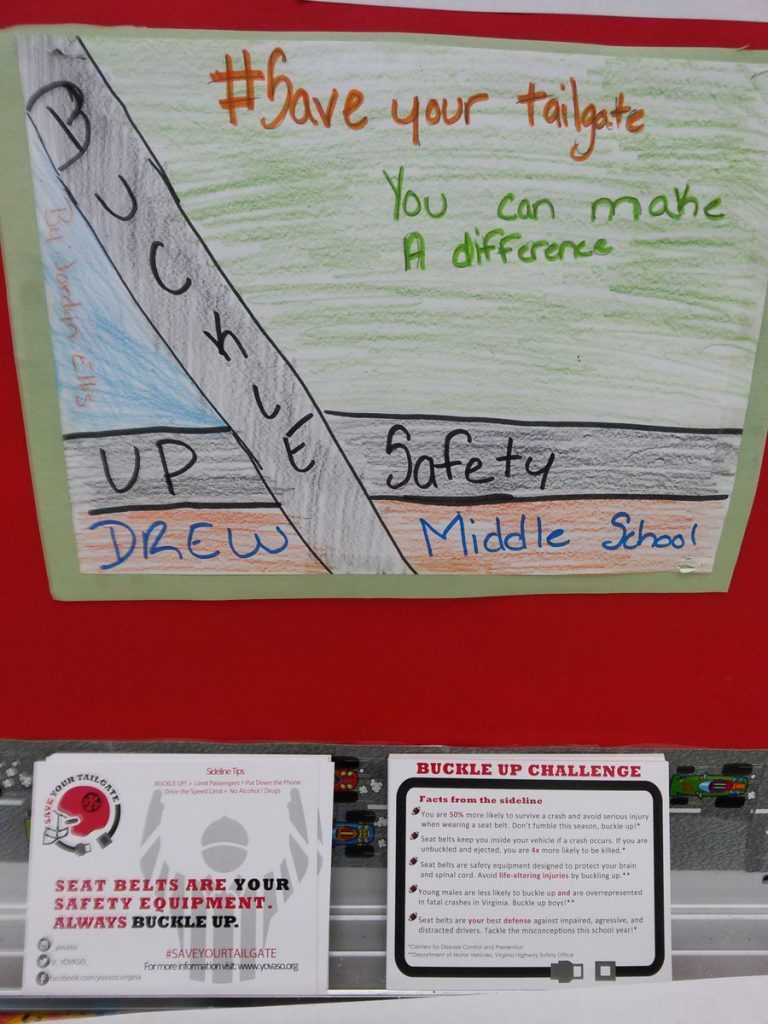 #Save your tailgate
You can make
A difference
BUCKLE
UP Safety
By: Jordin Ellis
DREW Middle School
SAVE YOUR TAILGATE
Sideline Tips
BUCKLE UP! • Limit Passengers • Put Down the Phone
Drive the Speed Limit • No Alcohol / Drugs
SEAT BELTS ARE YOUR
SAFETY EQUIPMENT.
ALWAYS BUCKLE UP.
_yovaso
_YOVASO_
facebook.com/yovaso.virginia
#SAVEYOURTAILGATE
For more information visit: www.yovaso.org
BUCKLE UP CHALLENGE
Facts from the sideline
You are 50% more likely to survive a crash and avoid serious injury
when wearing a seat belt. Don't fumble this season, buckle up!*
Seat belts keep you inside your vehicle if a crash occurs. If you are
unbuckled and ejected, you are 4x more likely to be killed.*
Seat belts are safety equipment designed to protect your brain
and spinal cord. Avoid life-altering injuries by buckling up.**
Young males are less likely to buckle up and are overrepresented
in fatal crashes in Virginia. Buckle up boys!**
Seat belts are your best defense against impaired, agressive, and
distracted drivers. Tackle the misconceptions this school year!*
*Centers for Disease Control and Prevention
**Department of Motor Vehicles, Virginia Highway Safety Office